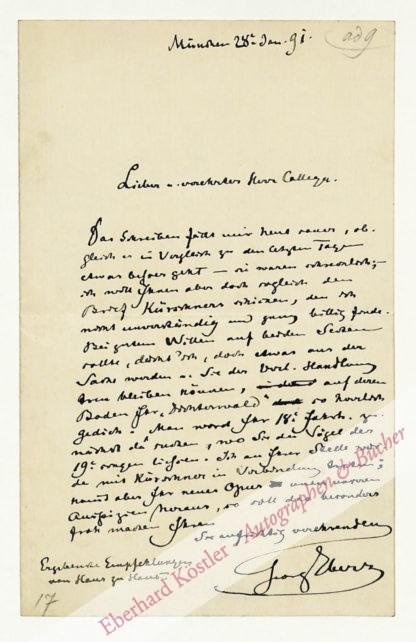 München 28t. Jan. 91.
ad 9
Lieber u. verehrter Herr College.
Das Schreiben fällt mir heut sauer, ob-
gleich es im Vergleich zu den letzten Tagen
etwas besser geht — sie waren schauerlich; —
ich will Ihnen aber doch sogleich den
Brief Kürschners schicken, den ich
nicht unverständig und ganz billig finde.
Bei gutem Willen auf beiden Seiten
sollte, dächt' ich, doch etwas aus der
Sache werden u. Sie der Verl. Handlung
treu bleiben können, auf deren
Boden Ihr „Dichterwald" so herrlich
gedieh. Man wird Ihr 18t. Jahrh. zu-
nächst da suchen, wo Sie die Vögel des
19t. singen ließen. Ich an Ihrer Stelle wür-
de mit Kürschner in Verbindung
kommt aber Ihr neues Opus
Auspizien heraus, so soll das besonders
froh machen Ihren
Sie aufrichtig verehrenden
Georg Ebers
Ergebenste Empfehlungen
von Haus zu Haus.
17
Eberhard Köstler Autographen & Bücher